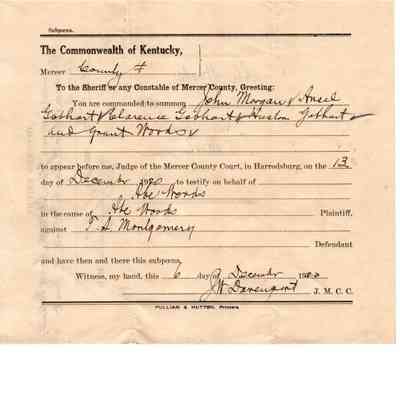 Subpoena.
The Commonwealth of Kentucky,
Mercer County
To the Sheriff or any Constable of Mercer County, Greeting:
You are commanded to summon John Morgan & Ansel
Gebhart & Clarence Gebhart & Huston Gebhart &
and Grant Woods
to appear before me, Judge of the Mercer County Court, in Harrodsburg, on the 13
day of December 1920 to testify on behalf of
Abe Woods
in the cause of Abe Woods Plaintiff,
against T. H Montgomery
Defendant
and have then and there this subpœna.
Witness, my hand, this 6 day of December 1920
JW Davenport J. M. C. C.
PULLIAM & HUTTER, Printers